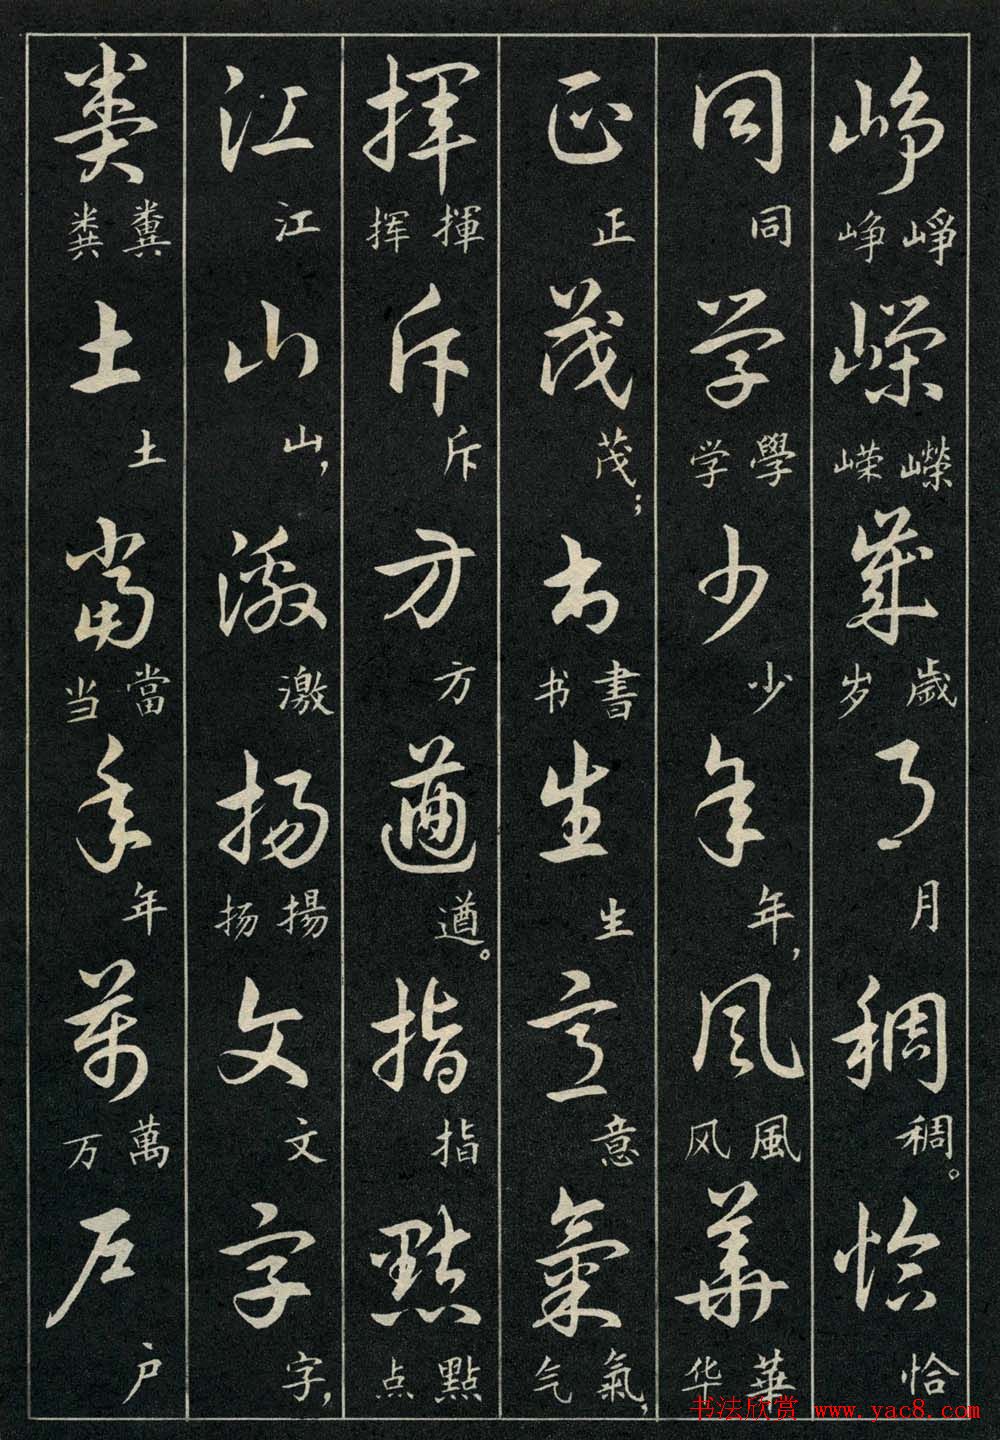 峥 崢 峥 嵘 嶸 嵘 歲 歲 岁 月 月 稠 稠。 恰 恰
同 同 学 學 学 少 少 年 年, 风 風 风 華 華 华
正 正 茂 茂; 书 書 书 生 生 意 意 氣 氣, 气
揮 揮 挥 斥 斥 方 方 遒 遒。 指 指 點 點 点
江 江 山 山, 激 激 扬 揚 扬 文 文 字 字,
粪 糞 粪 土 土 當 當 当 年 年 萬 萬 万 户 户
书法欣赏 www.yac8.com